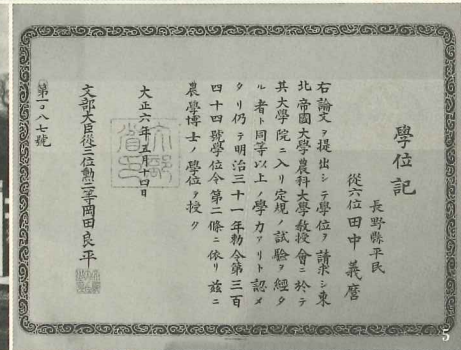 學位記
長野縣平民
從六位 田中義麿
右論文ヲ提出シテ學位ヲ請求シ東
北帝國大學農科大學教授會ニ於テ
其大學院ニ入リ定規ノ試驗ヲ經タ
ル者ト同等以上ノ學力アリト認メ
タリ仍テ明治三十一年勅令第三百
四十四號學位令第二條ニ依リ玆ニ
農學博士ノ學位ヲ授ク
大正六年五月十四日
文部省印
文部大臣從三位勳一等岡田良平
第一〇八七號
5